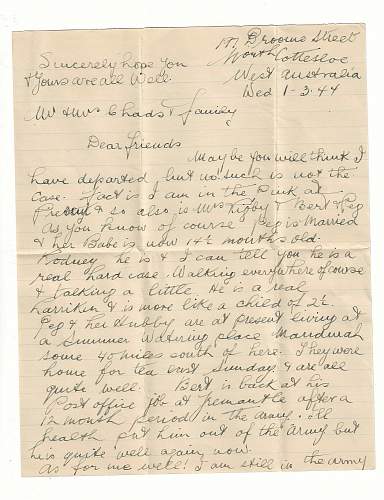 Sincerely hope You
& Yours are all Well.
Broome Street
North Cottesloe
West Australia
Wed 1-3.44
Mr & Mrs Chads & family
Dear friends
Maybe you will think I
have departed, but no such is not the
case. Fact is I am in the Pink at
Present & so also is Mrs Rigby & Bert & Peg
As you know of course Peg is Married
& her Babe is now 14½ months old.
Rodney he is & I can tell you he is a
real hard case. Walking everywhere of course
& talking a little. He is a real
larrikin & is more like a child of 2½.
Peg & her Hubby are at present living at
a Summer Watering place Mandurah
some 40 miles south of here. They were
home for tea last Sunday & are all
quite well. Bert is back at his
Post office job at Fremantle after a
12 month period in the army. Ill
health put him out of the army but
he is quite well again now.
As for me well! I am still in the army